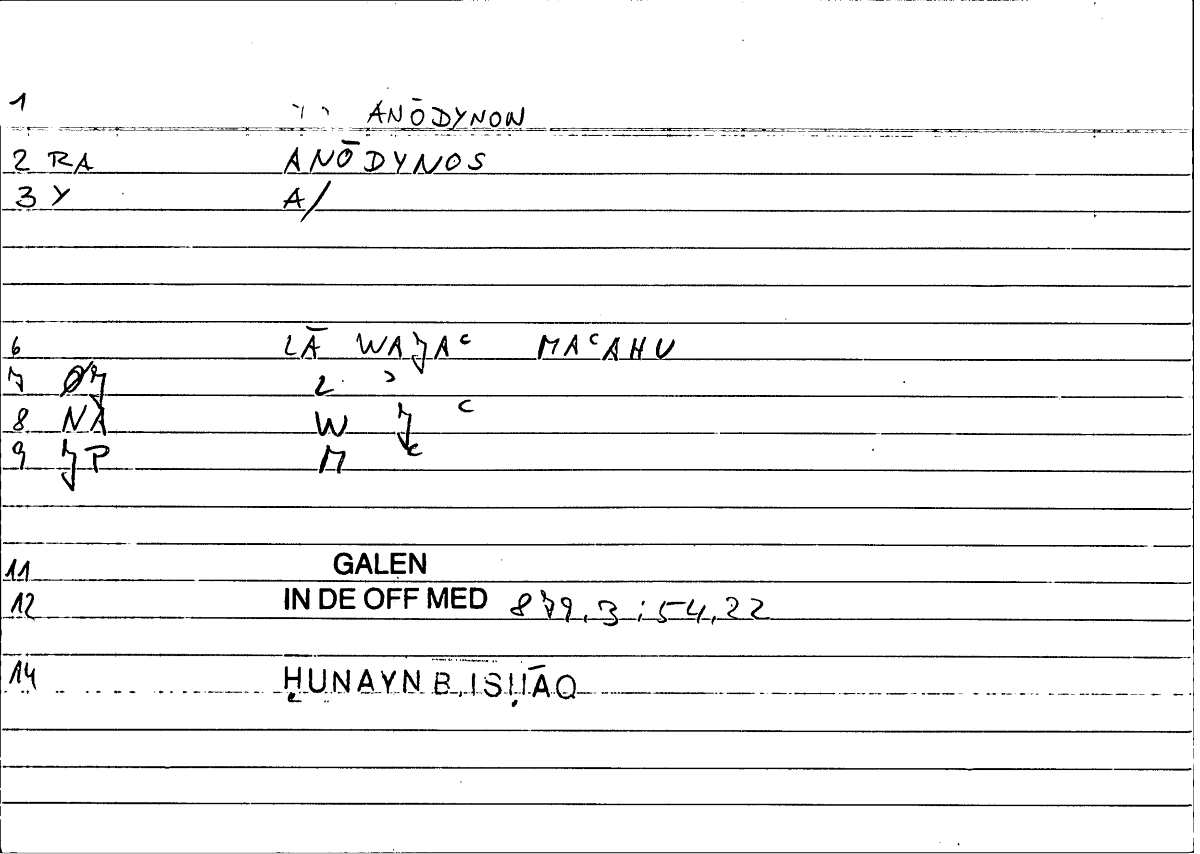 1 ANŌDYNON
2 RA ANŌDYNOS
3 Y A/
6 LĀ WAJAᶜ MAᶜAHU
7 ØJ L ɔ
8 NA W J ᶜ
9 JP M ᶜ
11 GALEN
12 IN DE OFF MED 879,3 ; 54,22
14 ḤUNAYN B. ISḤĀQ